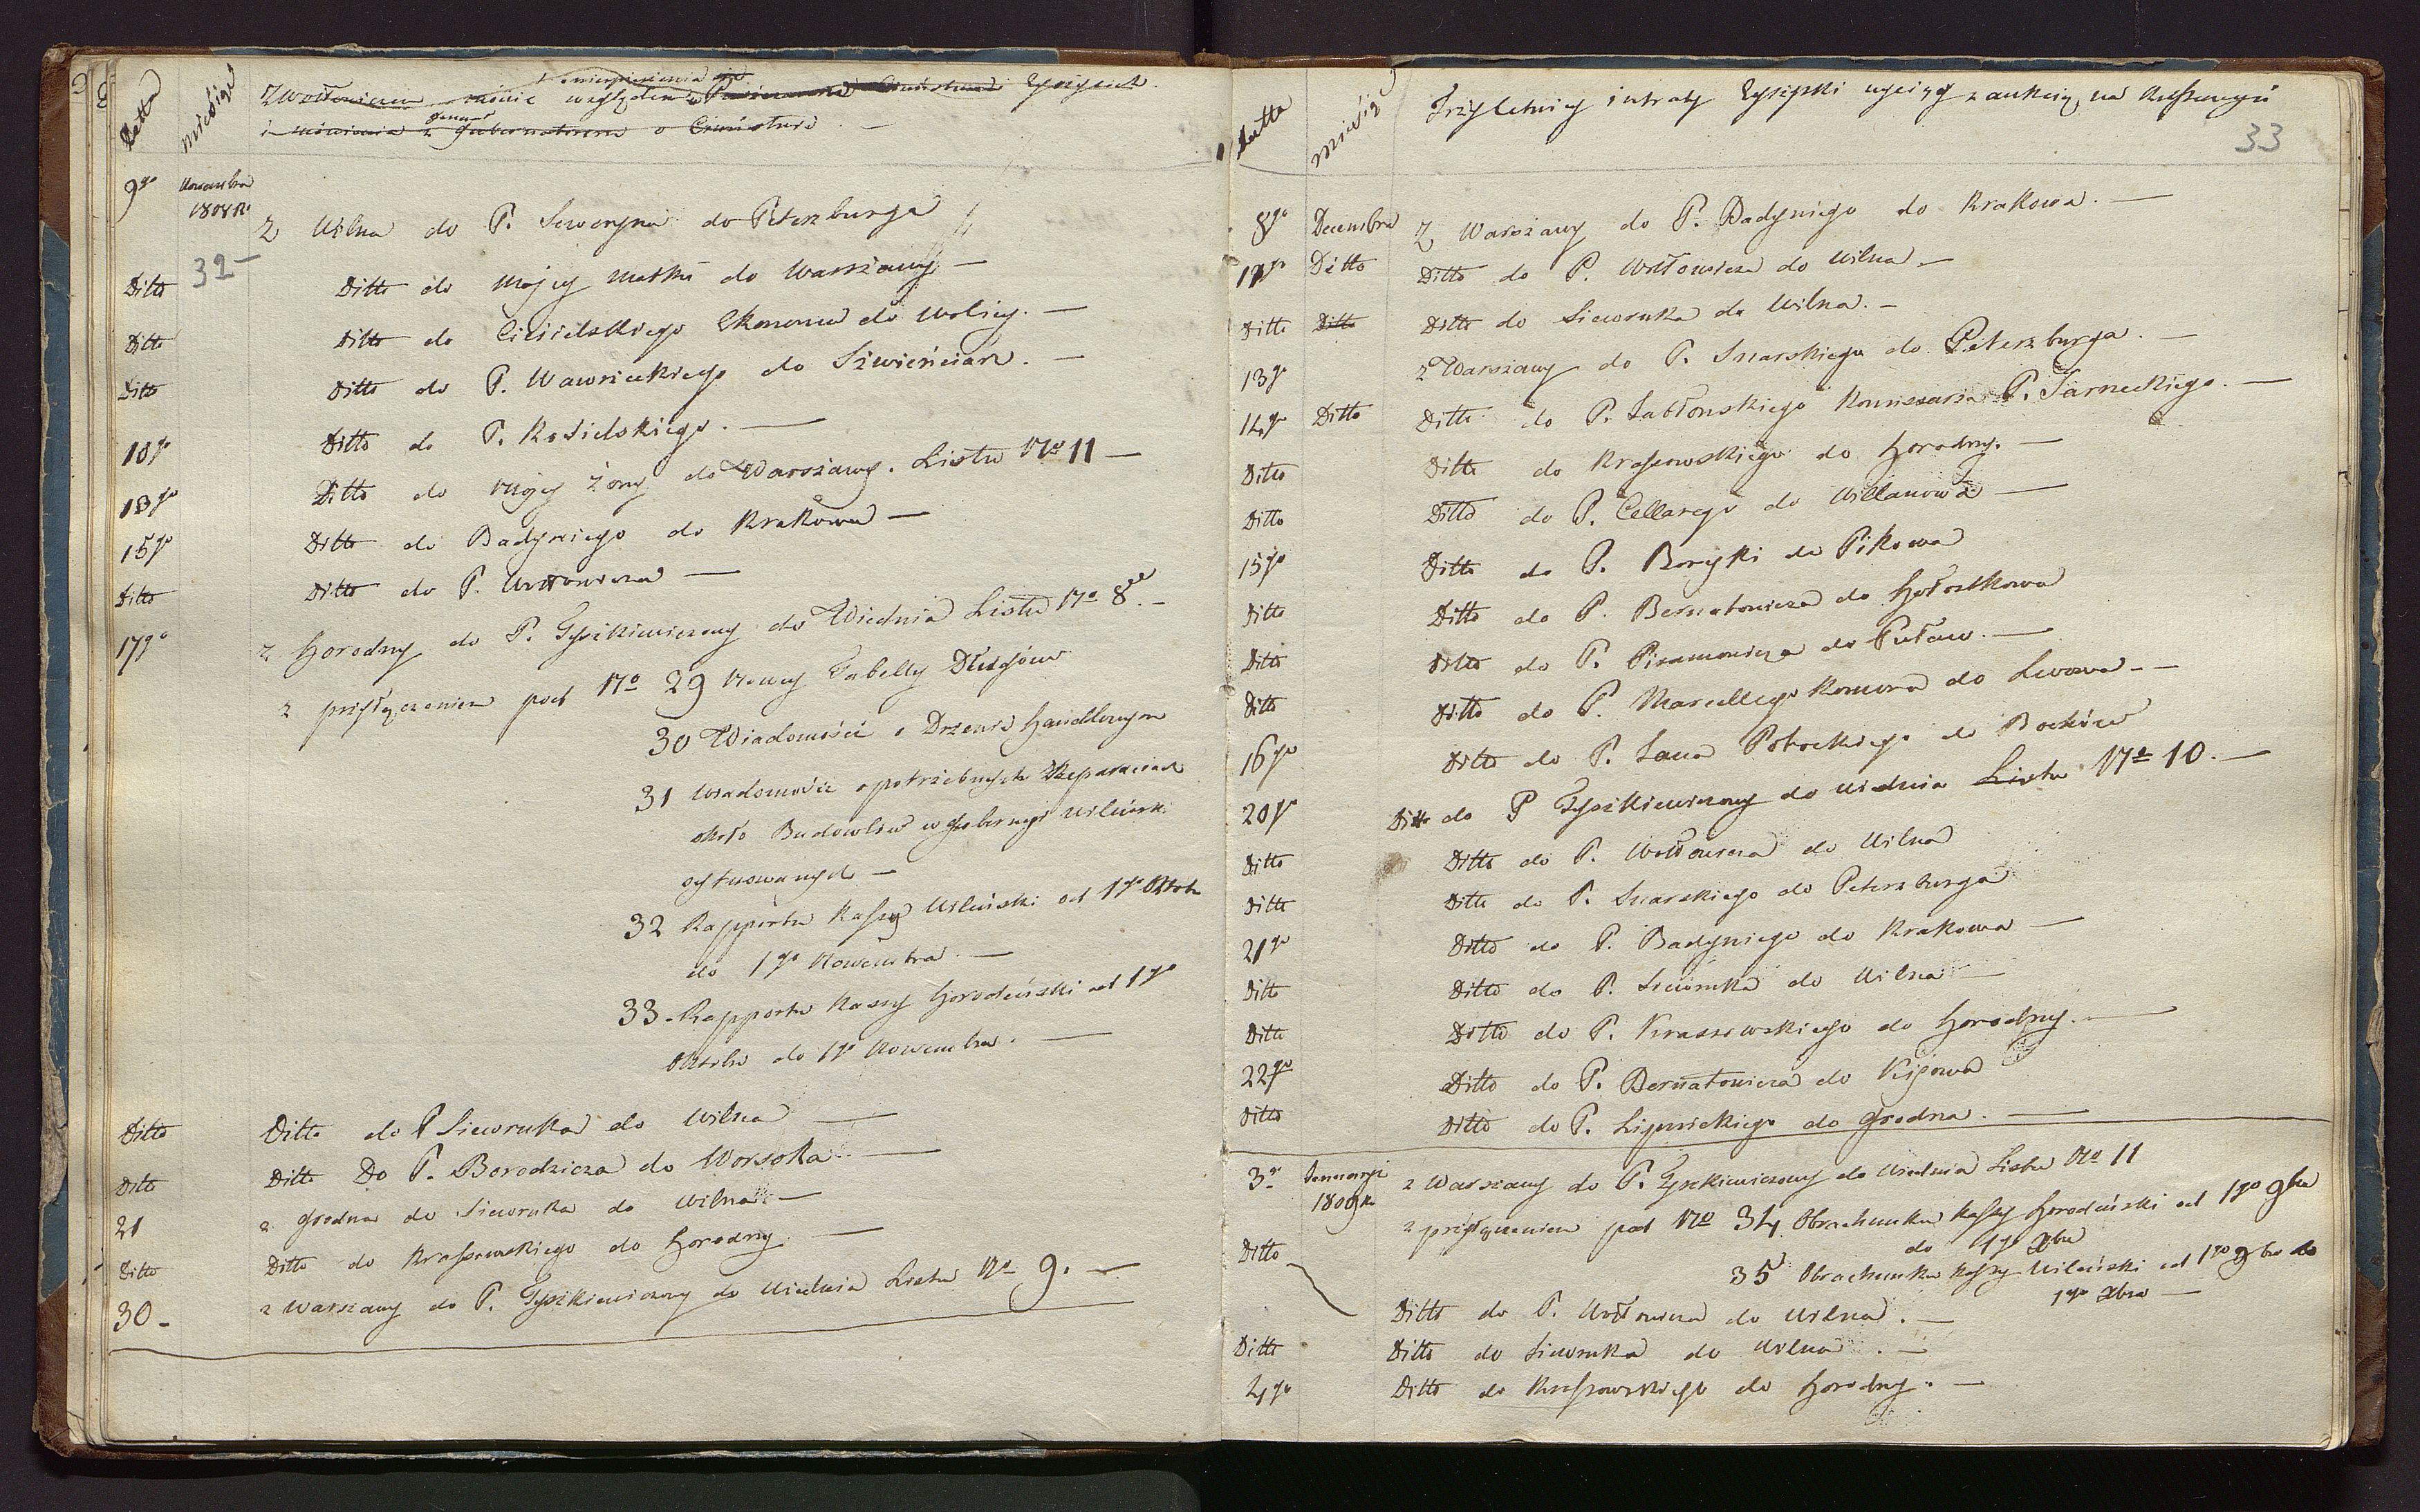 Datta miesiąc Z Wołłowiczem mówić względem Egzych
i mówienia z Gubernatorem o
9go Novembra 1808 R.
Z Wilna do P. Seweryna do Peterzburga
32
Ditto Ditto do mojey matki do Warszawy —
Ditto Ditto do Ciesielskiego Ekonoma do Wolicy. —
Ditto Ditto do P. Wawrzeckiego do Szwieńcian. —
10go Ditto do P. Kosielskiego. —
13go Ditto do mojey żony do Warszawy. Listu No 11 —
15go Ditto do Badyniego do Krakowa —
Ditto Ditto do P. Wołłowicza —
17go z Horodny do P. Tyszkiewiczowy do Wiednia Listu No 8. —
z przyłączeniem pod No 29 Nowey Tabelly Długów
30 Wiadomości o Drzewie Handlowym
31 Wiadomości o potrzebnych Reparaciach
około Budowlów w Gubernyi Wileńsk.
sytuowanych —
32 Rapportu Kassy Wileński od 1go Oktobr
do 1go Nowembra. —
33 Rapportu Kassy Horodeński od 1go
Oktobr do 1go Nowembra. —
Ditto Ditto do P Siewruka do Wilna —
Ditto Ditto Do P. Borodzicza do Worsoka —
21 z Grodna do Siewruka do Wilna. —
Ditto Ditto do Krassowskiego do Horodny. —
30 — z Warszawy do P. Tyszkiewiczowy do Wiednia Listu No 9. —
Datta miesiąc Trzyletniey intraty Egzypki wyciąg z aukcią na
33
8go Decembra Z Warszawy do P. Badyniego do Krakowa. —
12go Ditto Ditto do P. Wołłowicza do Wilna —
Ditto Ditto Ditto do Siewruka do Wilna. —
13go z Warszawy do P. Snarskiego do Peterzburga. —
14go Ditto Ditto do P. Jabłonskiego Komissarza P. Tarneckiego. —
Ditto Ditto do Krassowskiego do Horodny. —
Ditto Ditto do P. Cellarego do Willanowa —
15go Ditto do P. Boreyki do Pikowa
Ditto Ditto do P. Bernatowicza do Hołoskowa
Ditto Ditto do P. Piramowicza do Puław. —
Ditto Ditto do P. Marcellego Komora do Lwowa. —
16go Ditto do P. Jana Potockiego do Boćków
20go Ditto do P Tyszkiewiczowy do Wiednia Listu No 10. —
Ditto Ditto do P. Wołłowicza do Wilna
Ditto Ditto do P. Snarskiego do Peterzburga
21go Ditto do P. Badyniego do Krakowa —
Ditto Ditto do P. Siewruka do Wilna —
Ditto Ditto do P. Krassowskiego do Horodny. —
22go Ditto do P. Bernatowicza do Kijowa
Ditto Ditto do P. Lipnickiego do Grodna. —
3o Januaryi 1809 R. z Warszawy do P. Tyszkiewiczowy do Wiednia Listu No 11
z przyłączeniem pod No 34 Obrachunku Kassy Horodeński od 1go 9bra
do 1go Xbra
35 Obrachunku Kassy Wileński od 1go 9bra do
1go Xbra —
Ditto Ditto do P. Wołłowicza do Wilna. —
Ditto Ditto do Siewruka do Wilna. —
4go Ditto do Krassowskiego do Horodny. —